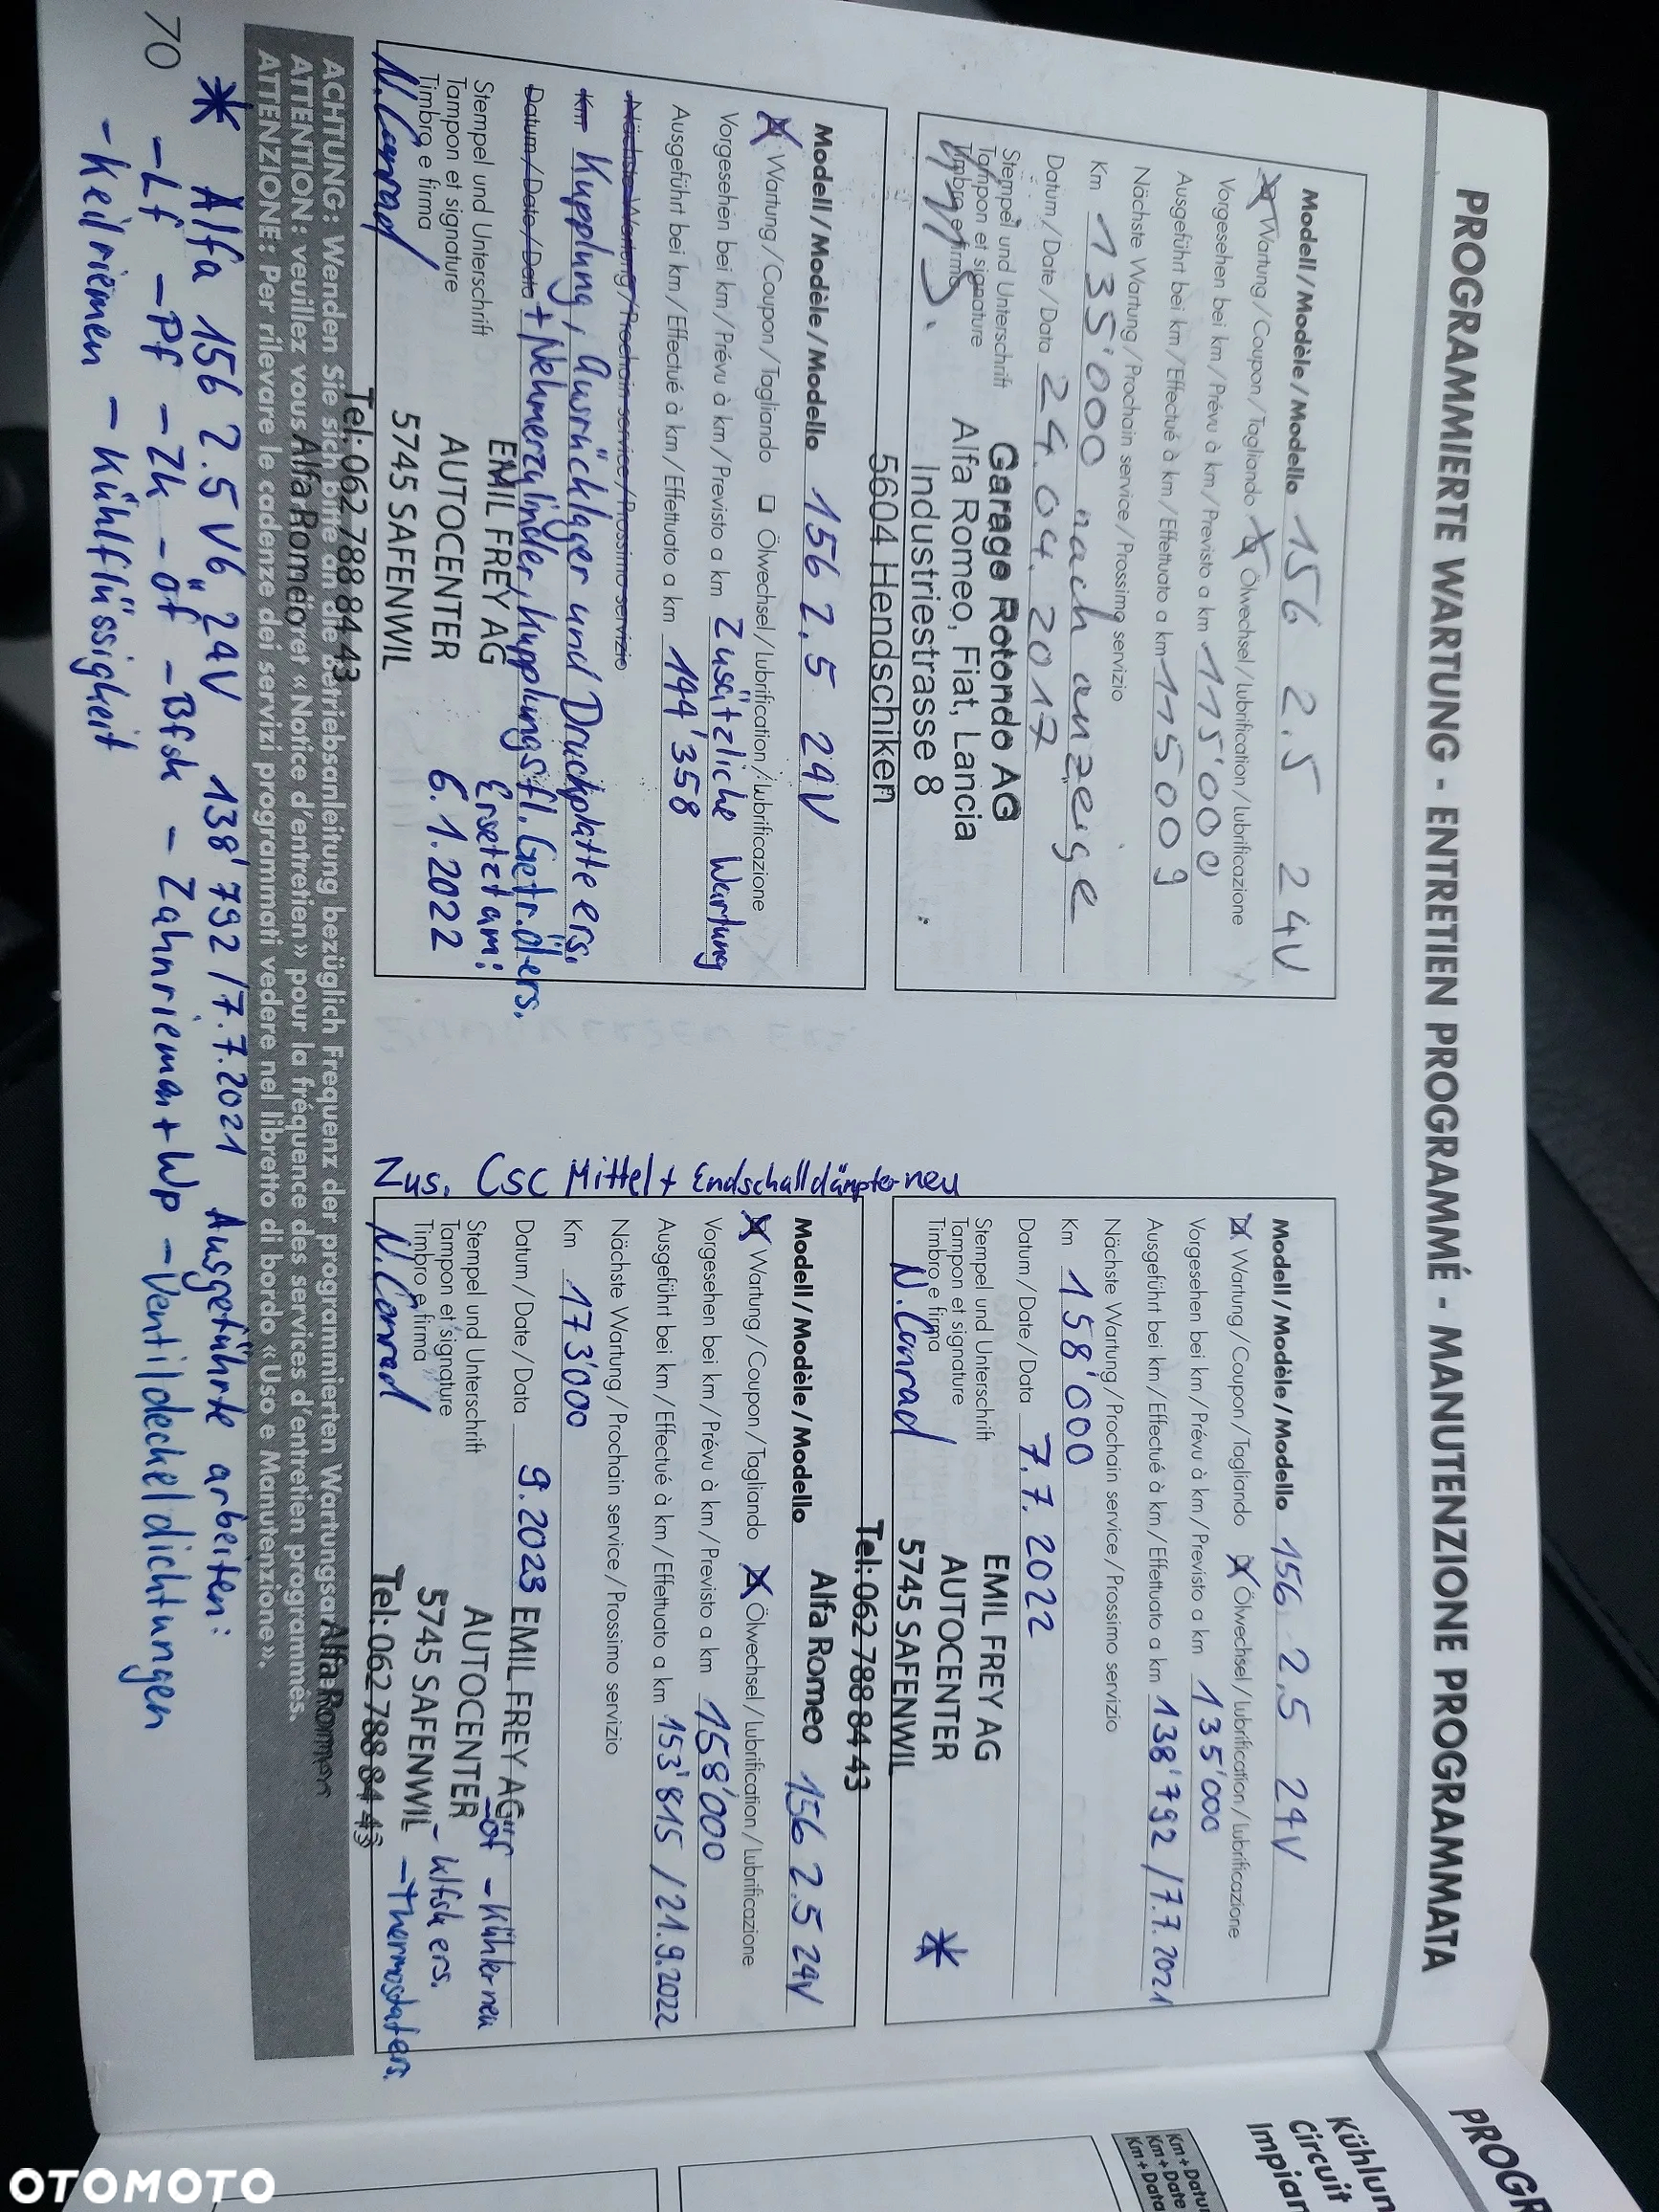 PROGRAMMIERTE WARTUNG - ENTRETIEN PROGRAMMÉ - MANUTENZIONE PROGRAMMATA
Modell / Modèle / Modello 156 2.5 24V
Wartung / Coupon / Tagliando Ölwechsel / Lubrification / Lubrificazione
Vorgesehen bei km / Prévu à km / Previsto a km 115'000
Ausgeführt bei km / Effectué à km / Effettuato a km 115009
Nächste Wartung / Prochain service / Prossimo servizio
Km 135'000 nach anzeige
Datum / Date / Data 24.04.2017
Stempel und Unterschrift
Tampon et signature
Timbro e firma
Garage Rotondo AG
Alfa Romeo, Fiat, Lancia
Industriestrasse 8
5604 Hendschiken
Modell / Modèle / Modello 156 2,5 24V
Wartung / Coupon / Tagliando Ölwechsel / Lubrification / Lubrificazione
Vorgesehen bei km / Prévu à km / Previsto a km Zusätzliche Wartung
Ausgeführt bei km / Effectué à km / Effettuato a km 144'358
Nächste Wartung / Prochain service / Prossimo servizio
Km Kupplung, Ausrücklager und Druckplatte ers.
Datum / Date / Data + Nehmerzylinder, Kupplungsfl. Getr.öl ers.
Stempel und Unterschrift
Tampon et signature
Timbro e firma
N. Conrad
EMIL FREY AG Ersetzt am:
AUTOCENTER 6.1.2022
5745 SAFENWIL
Tel. 062 788 84 43
Alfa Romeo
Modell / Modèle / Modello 156 2,5 24V
Wartung / Coupon / Tagliando Ölwechsel / Lubrification / Lubrificazione
Vorgesehen bei km / Prévu à km / Previsto a km 135'000
Ausgeführt bei km / Effectué à km / Effettuato a km 138'792 / 7.7.2021
Nächste Wartung / Prochain service / Prossimo servizio
Km 158'000
Datum / Date / Data 7.7.2022
Stempel und Unterschrift
Tampon et signature
Timbro e firma
N. Conrad
EMIL FREY AG
AUTOCENTER *
5745 SAFENWIL
Tel. 062 788 84 43
Alfa Romeo
Modell / Modèle / Modello 156 2.5 24V
Wartung / Coupon / Tagliando Ölwechsel / Lubrification / Lubrificazione
Vorgesehen bei km / Prévu à km / Previsto a km 158'000
Ausgeführt bei km / Effectué à km / Effettuato a km 153'815 / 21.9.2022
Nächste Wartung / Prochain service / Prossimo servizio
Km 173'000
Datum / Date / Data 9.2023
Stempel und Unterschrift
Tampon et signature
Timbro e firma
N. Conrad
EMIL FREY AG -öf -Kühler neu
AUTOCENTER
5745 SAFENWIL
Tel. 062 788 84 43 -Thermostat ers.
Alfa Romeo
Zus. CSC Mittel + Endschalldämpfer neu
ACHTUNG: Wenden Sie sich bitte an die Betriebsanleitung bezüglich Frequenz der programmierten Wartungsarbeiten.
ATTENTION: veuillez vous référer à la «Notice d'entretien» pour la fréquence des services d'entretien programmes.
ATTENZIONE: Per rilevare le cadenze dei servizi programmati vedere nel libretto di bordo «Uso e Manutenzione».
* Alfa 156 2.5 V6, 24V 138'792 / 7.7.2021 Ausgeführte arbeiten:
-Lf -Pf -Zk -öf -Bfsk - Zahnriemen + Wp -Ventildeckeldichtungen
-Keilriemen - Kühlflüssigkeit
70
PROGR
Kühlun
Circuit
Impian
Km + Datu
Km + Date
Km + Data
OTOMOTO